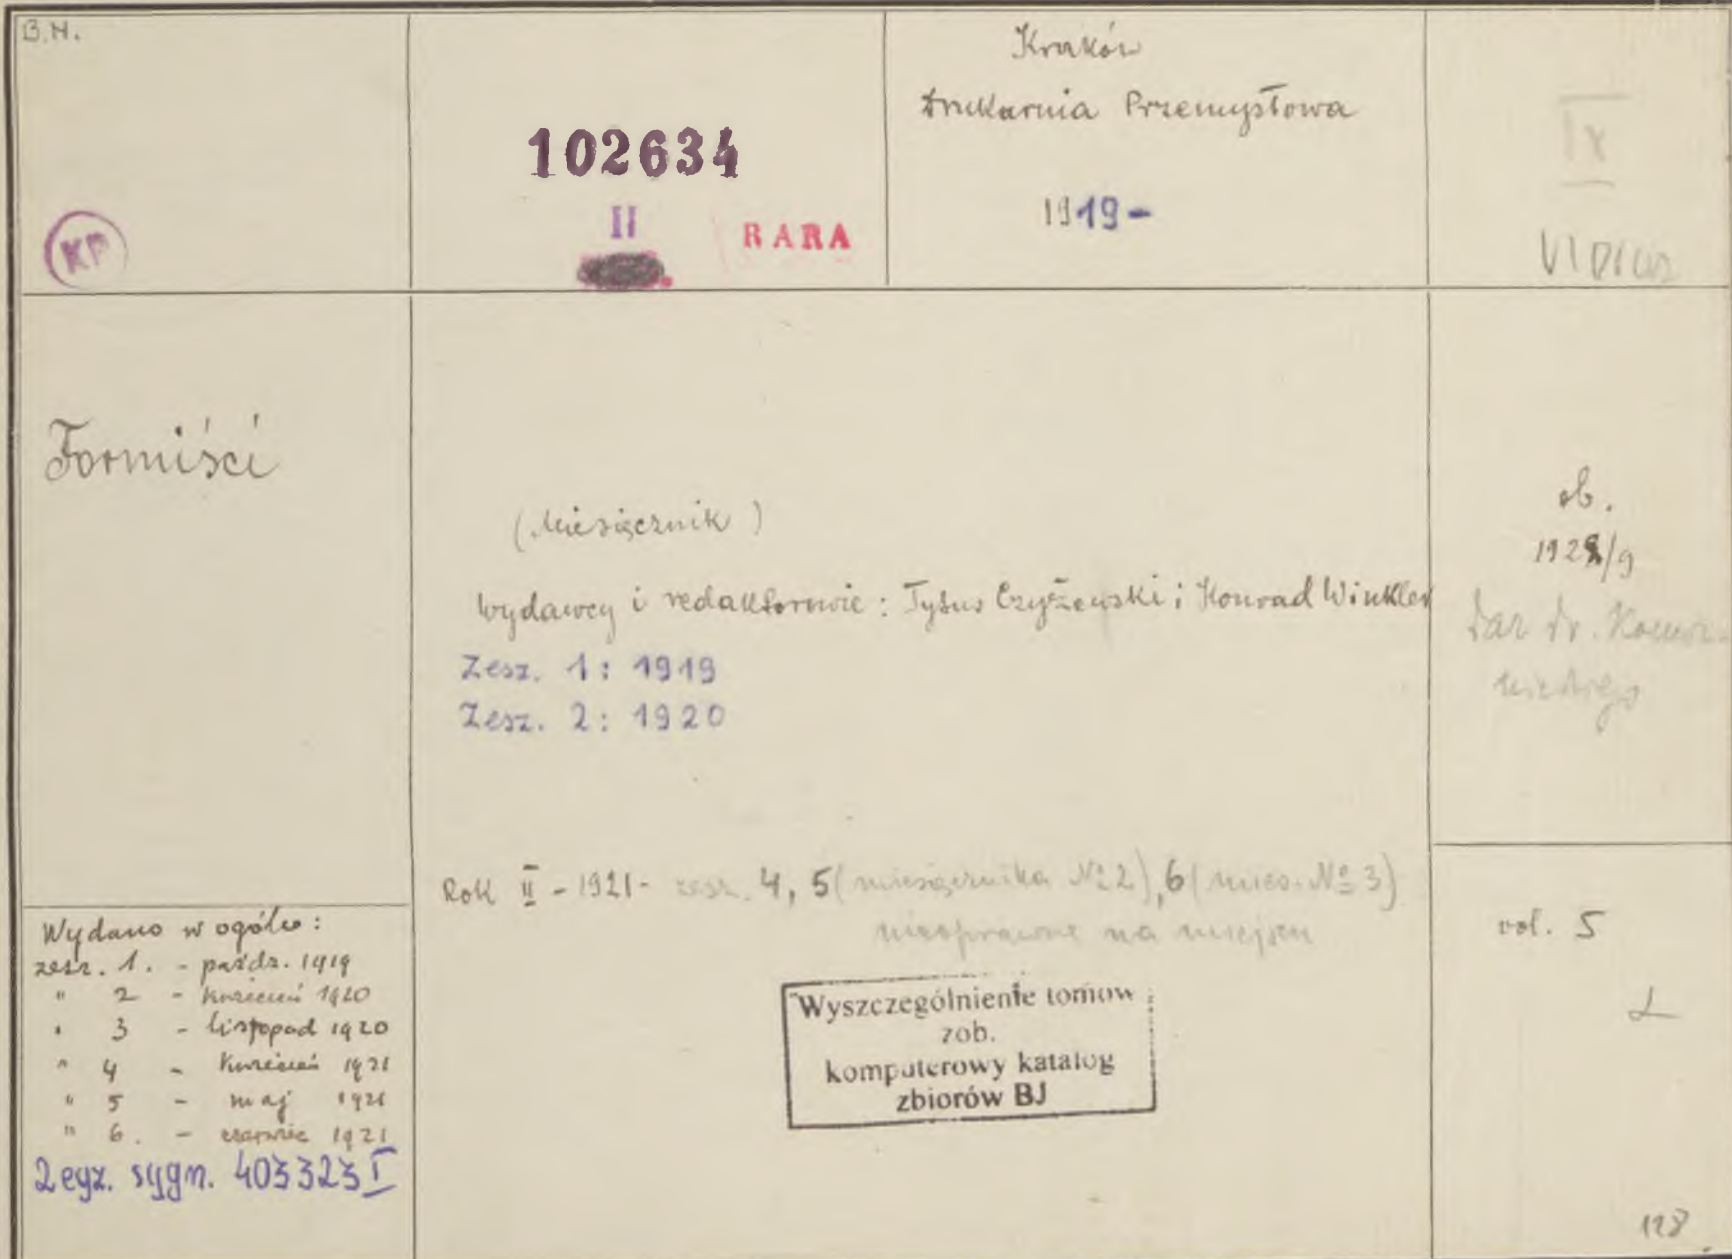 B.N.
102634
II
RARA
KP
Kraków
Drukarnia Przemysłowa
1919-
IX
Formiści
(Miesięcznik)
wydawcy i redaktorowie: Tytus Czyżewski i Konrad Winkler
Zesz. 1: 1919
Zesz. 2: 1920
Rok II - 1921 - zesz. 4, 5 (miesięcznika № 2), 6 (mies. № 3)
nieoprawne na miejscu
Wyszczególnienie tomów
zob.
komputerowy katalog
zbiorów BJ
ob.
dar dr.
vol. 5
118
Wydano w ogóle:
zesz. 1. - paźdz. 1919
" 2 - kwiecień 1920
" 3 - listopad 1920
" 4 - kwiecień 1921
" 5 - maj 1921
" 6. - czerwiec 1921
2 egz. sygn. 403323 I